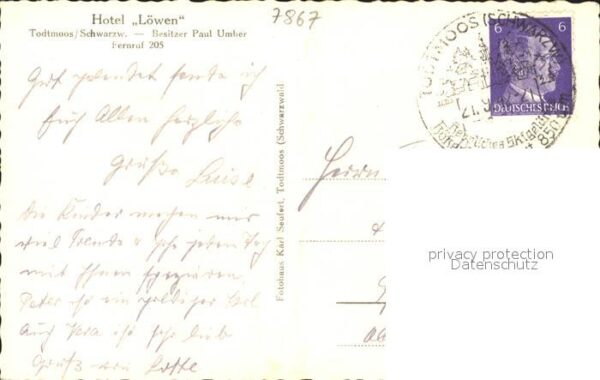 Hotel „Löwen"
Todtmoos/Schwarzw. — Besitzer Paul Umher
Fernruf 205
7867
Gut gelandet sende ich
Euch Allen herzliche
Grüße Luise
Die Kinder machen mir
viel Freude u. jeden Tag
mit Ihnen spazieren.
Peter ist ein goldiger Kerl
Auch Vera ist sehr lieb
Gruß von Lotte
Fotohaus Karl Seufert, Todtmoos (Schwarzwald)
Herrn
TODTMOOS (SCHWARZW.
6 6
DEUTSCHES REICH
privacy protection
Datenschutz